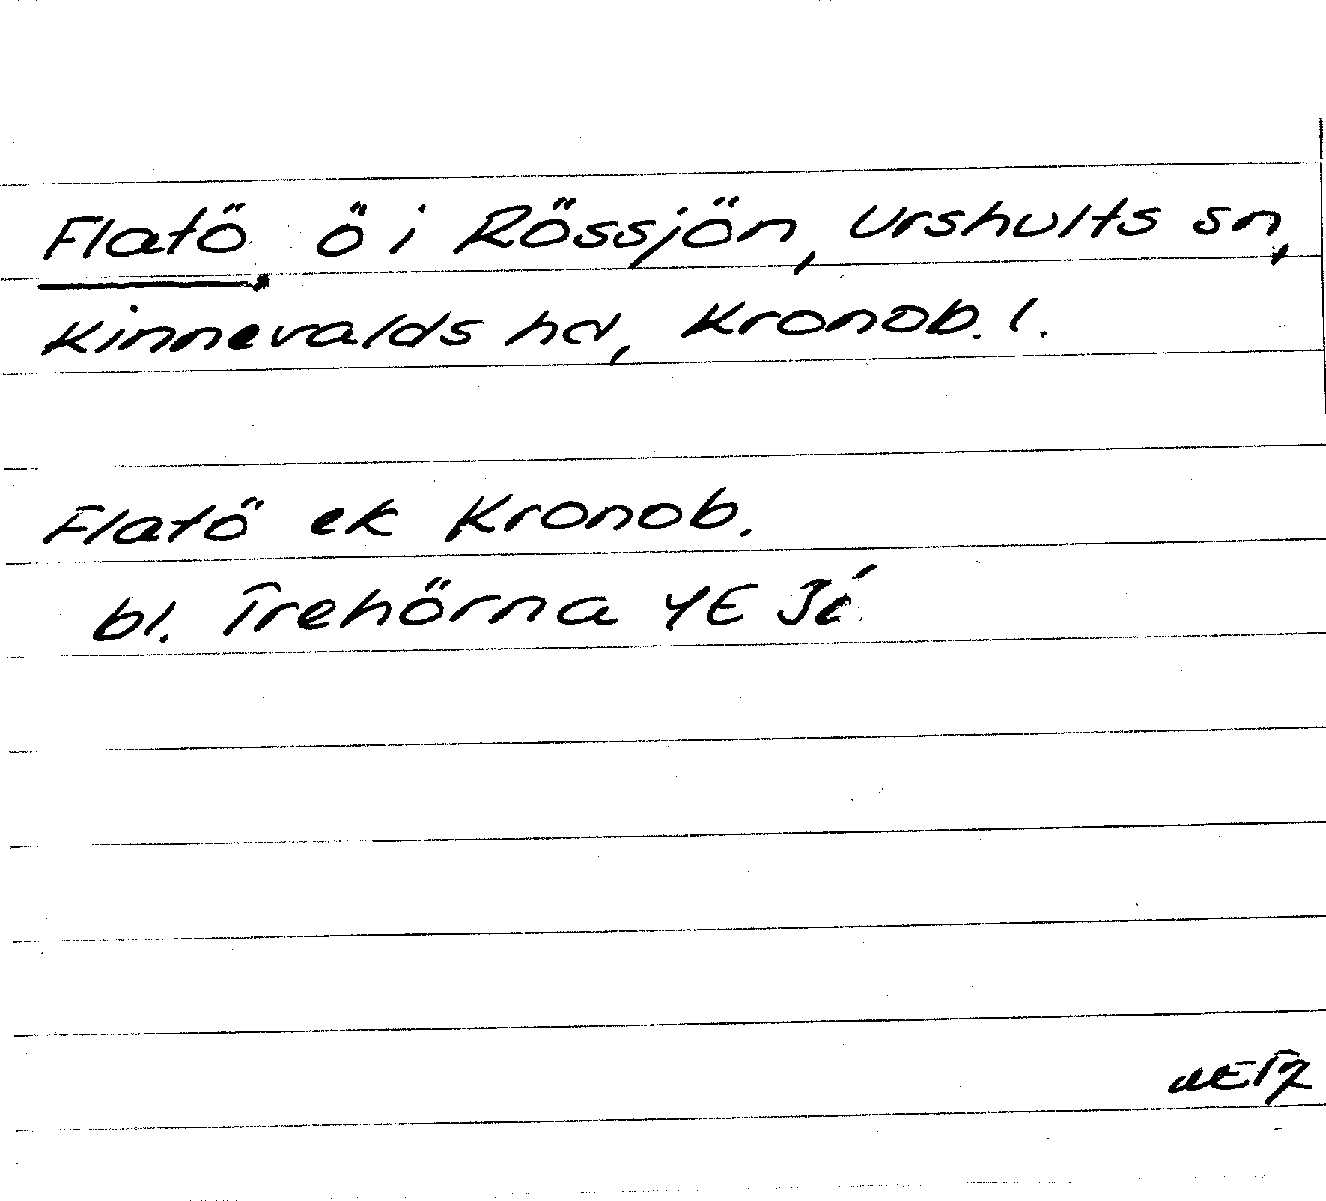 Flatö, ö i Rössjön, Urshults sn,
Kinnevalds hd, Kronob. l.
Flatö ek Kronob.
bl. Trehörna 4E